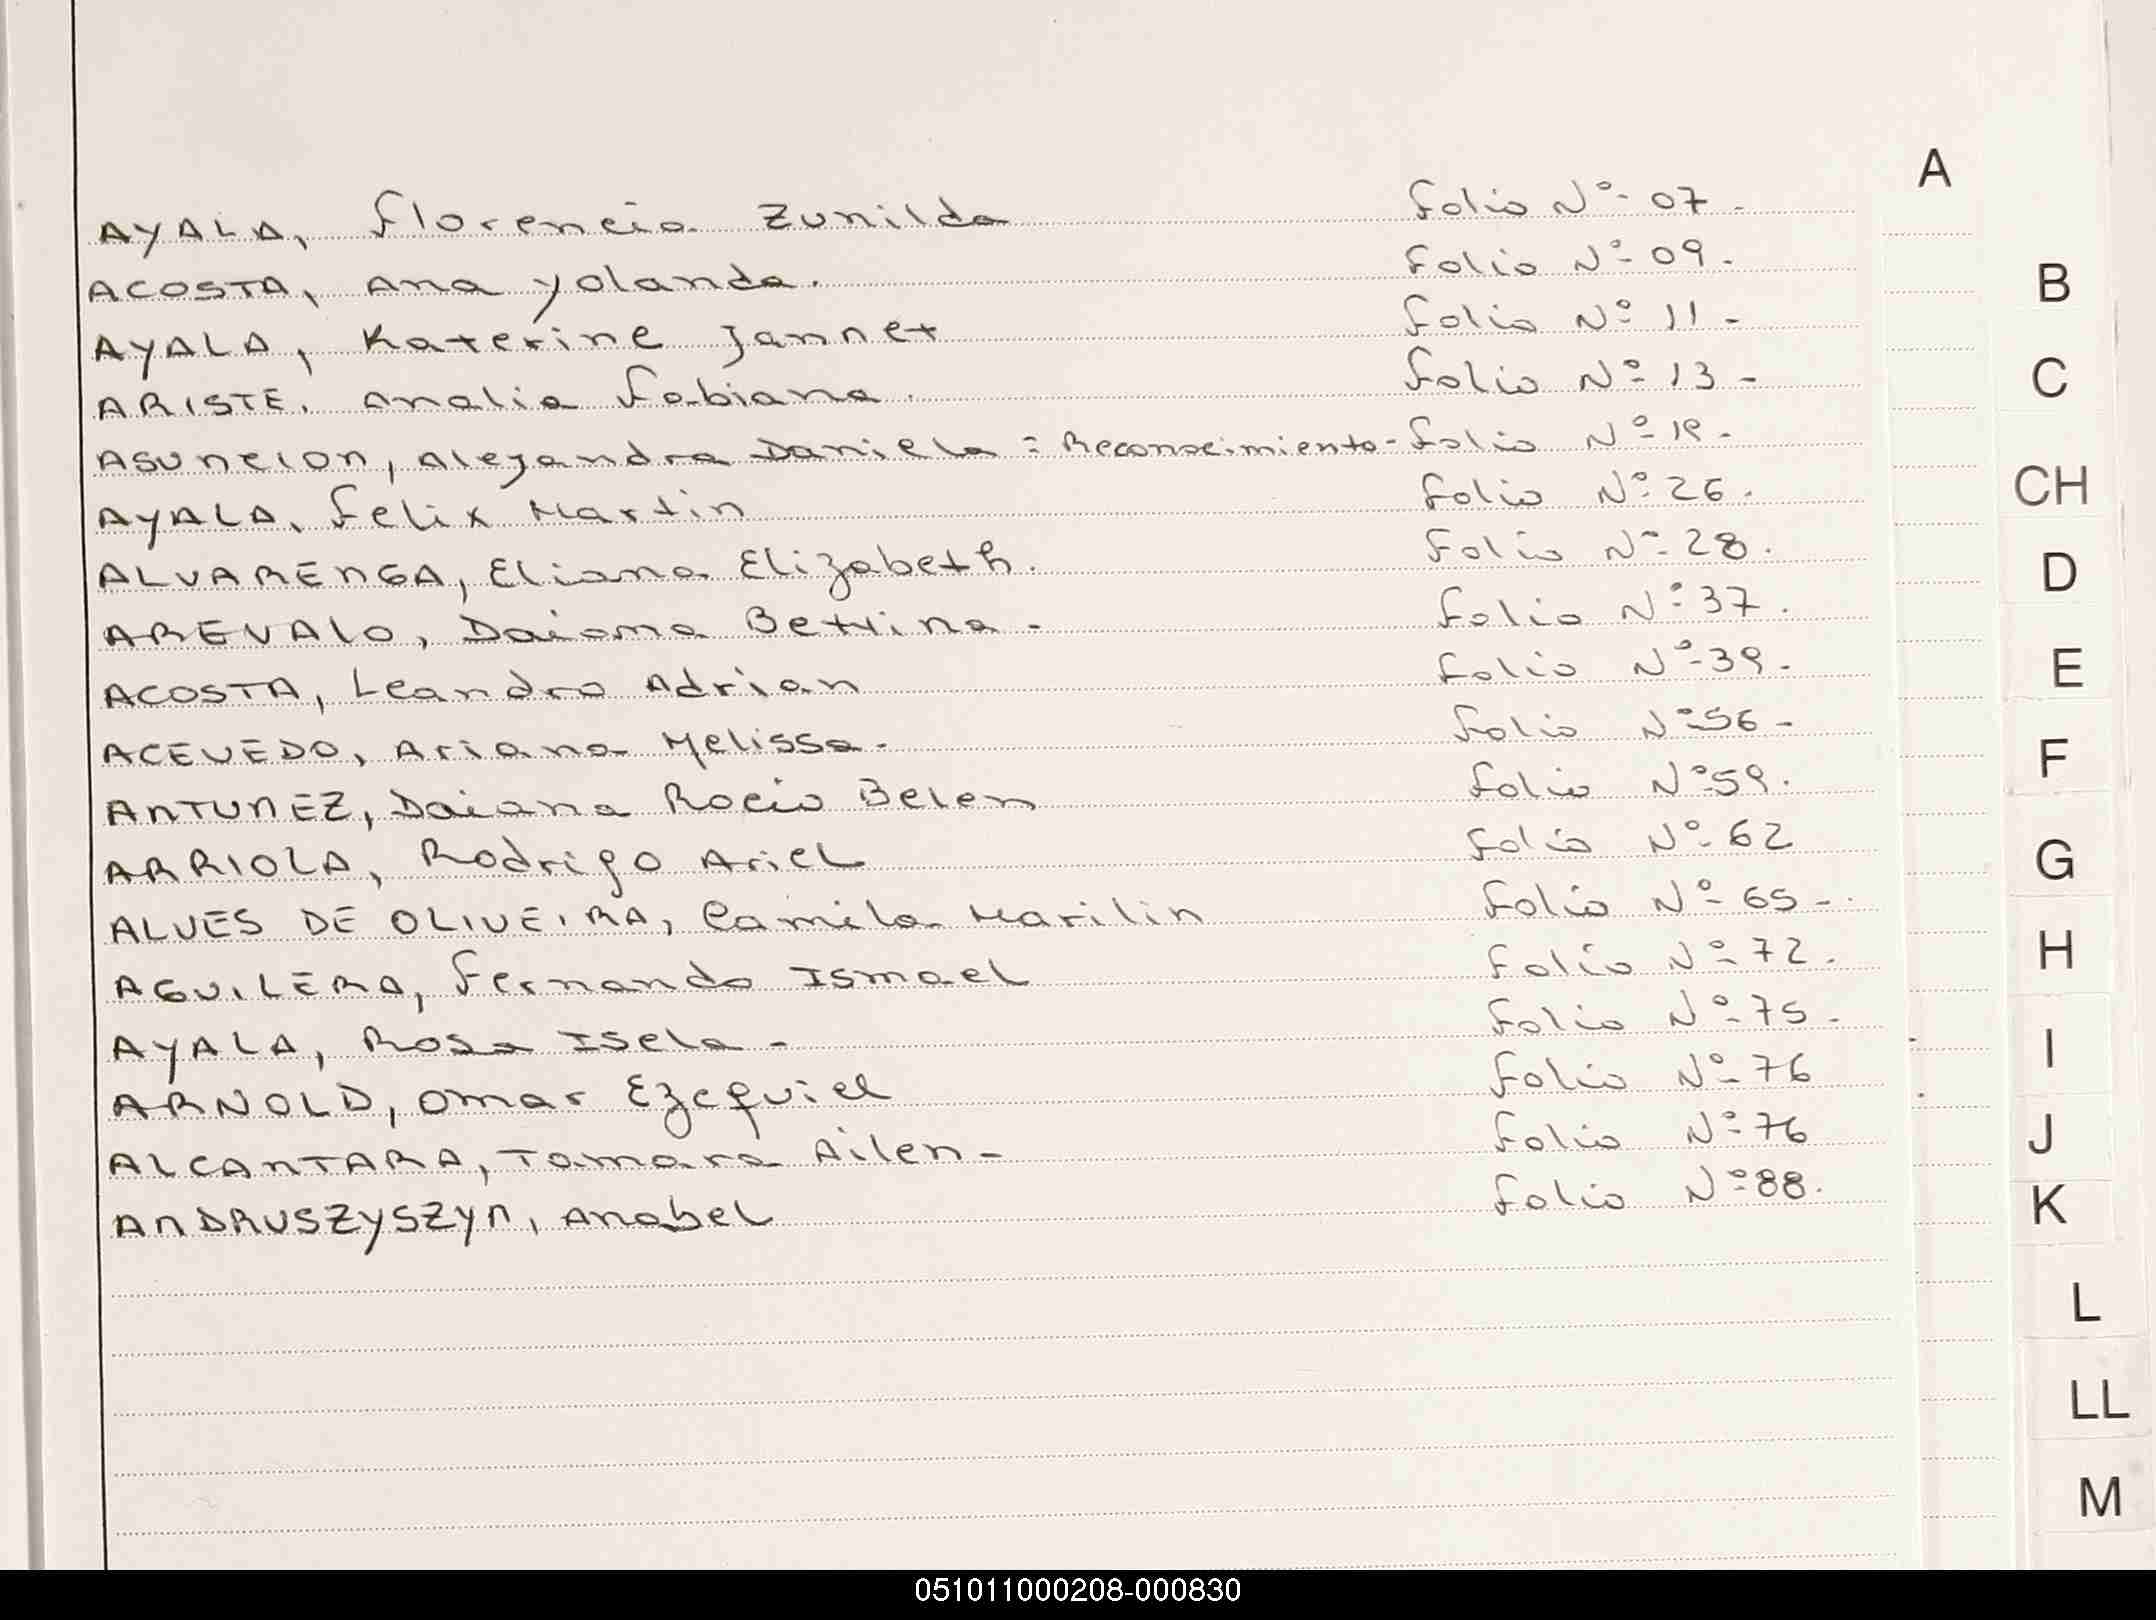 A
AYALA, Florencia Zunilda Folio Nº 07.
ACOSTA, Ana Yolanda. Folio Nº 09.
AYALA, Katerine Jannet Folio Nº 11-
ARISTE. Analia Fabiana. Folio Nº 13-
ASUNCION, Alejandra Daniela = Reconocimiento- Folio Nº 19.
AYALA, Felix Martin Folio Nº 26.
ALVARENGA, Eliana Elizabeth. Folio Nº 28.
AREVALO, Daiana Bettina. Folio Nº 37.
ACOSTA, Leandro Adrian Folio Nº 39.
ACEVEDO, Ariana Melissa. Folio Nº 56-
ANTUNEZ, Daiana Rocio Belen Folio Nº 59.
ARRIOLA, Rodrigo Ariel Folio Nº 62
ALVES DE OLIVEIRA, Camila Marilin Folio Nº 65-
AGUILERA, Fernando Ismael Folio Nº 72.
AYALA, Rosa Isela- Folio Nº 75.
ARNOLD, Omar Ezequiel Folio Nº 76
ALCANTARA, Tamara Ailen- Folio Nº 76
ANDRUSZYSZYN, Anabel Folio Nº 88.
B
C
CH
D
E
F
G
H
I
J
K
L
LL
M
051011000208-000830